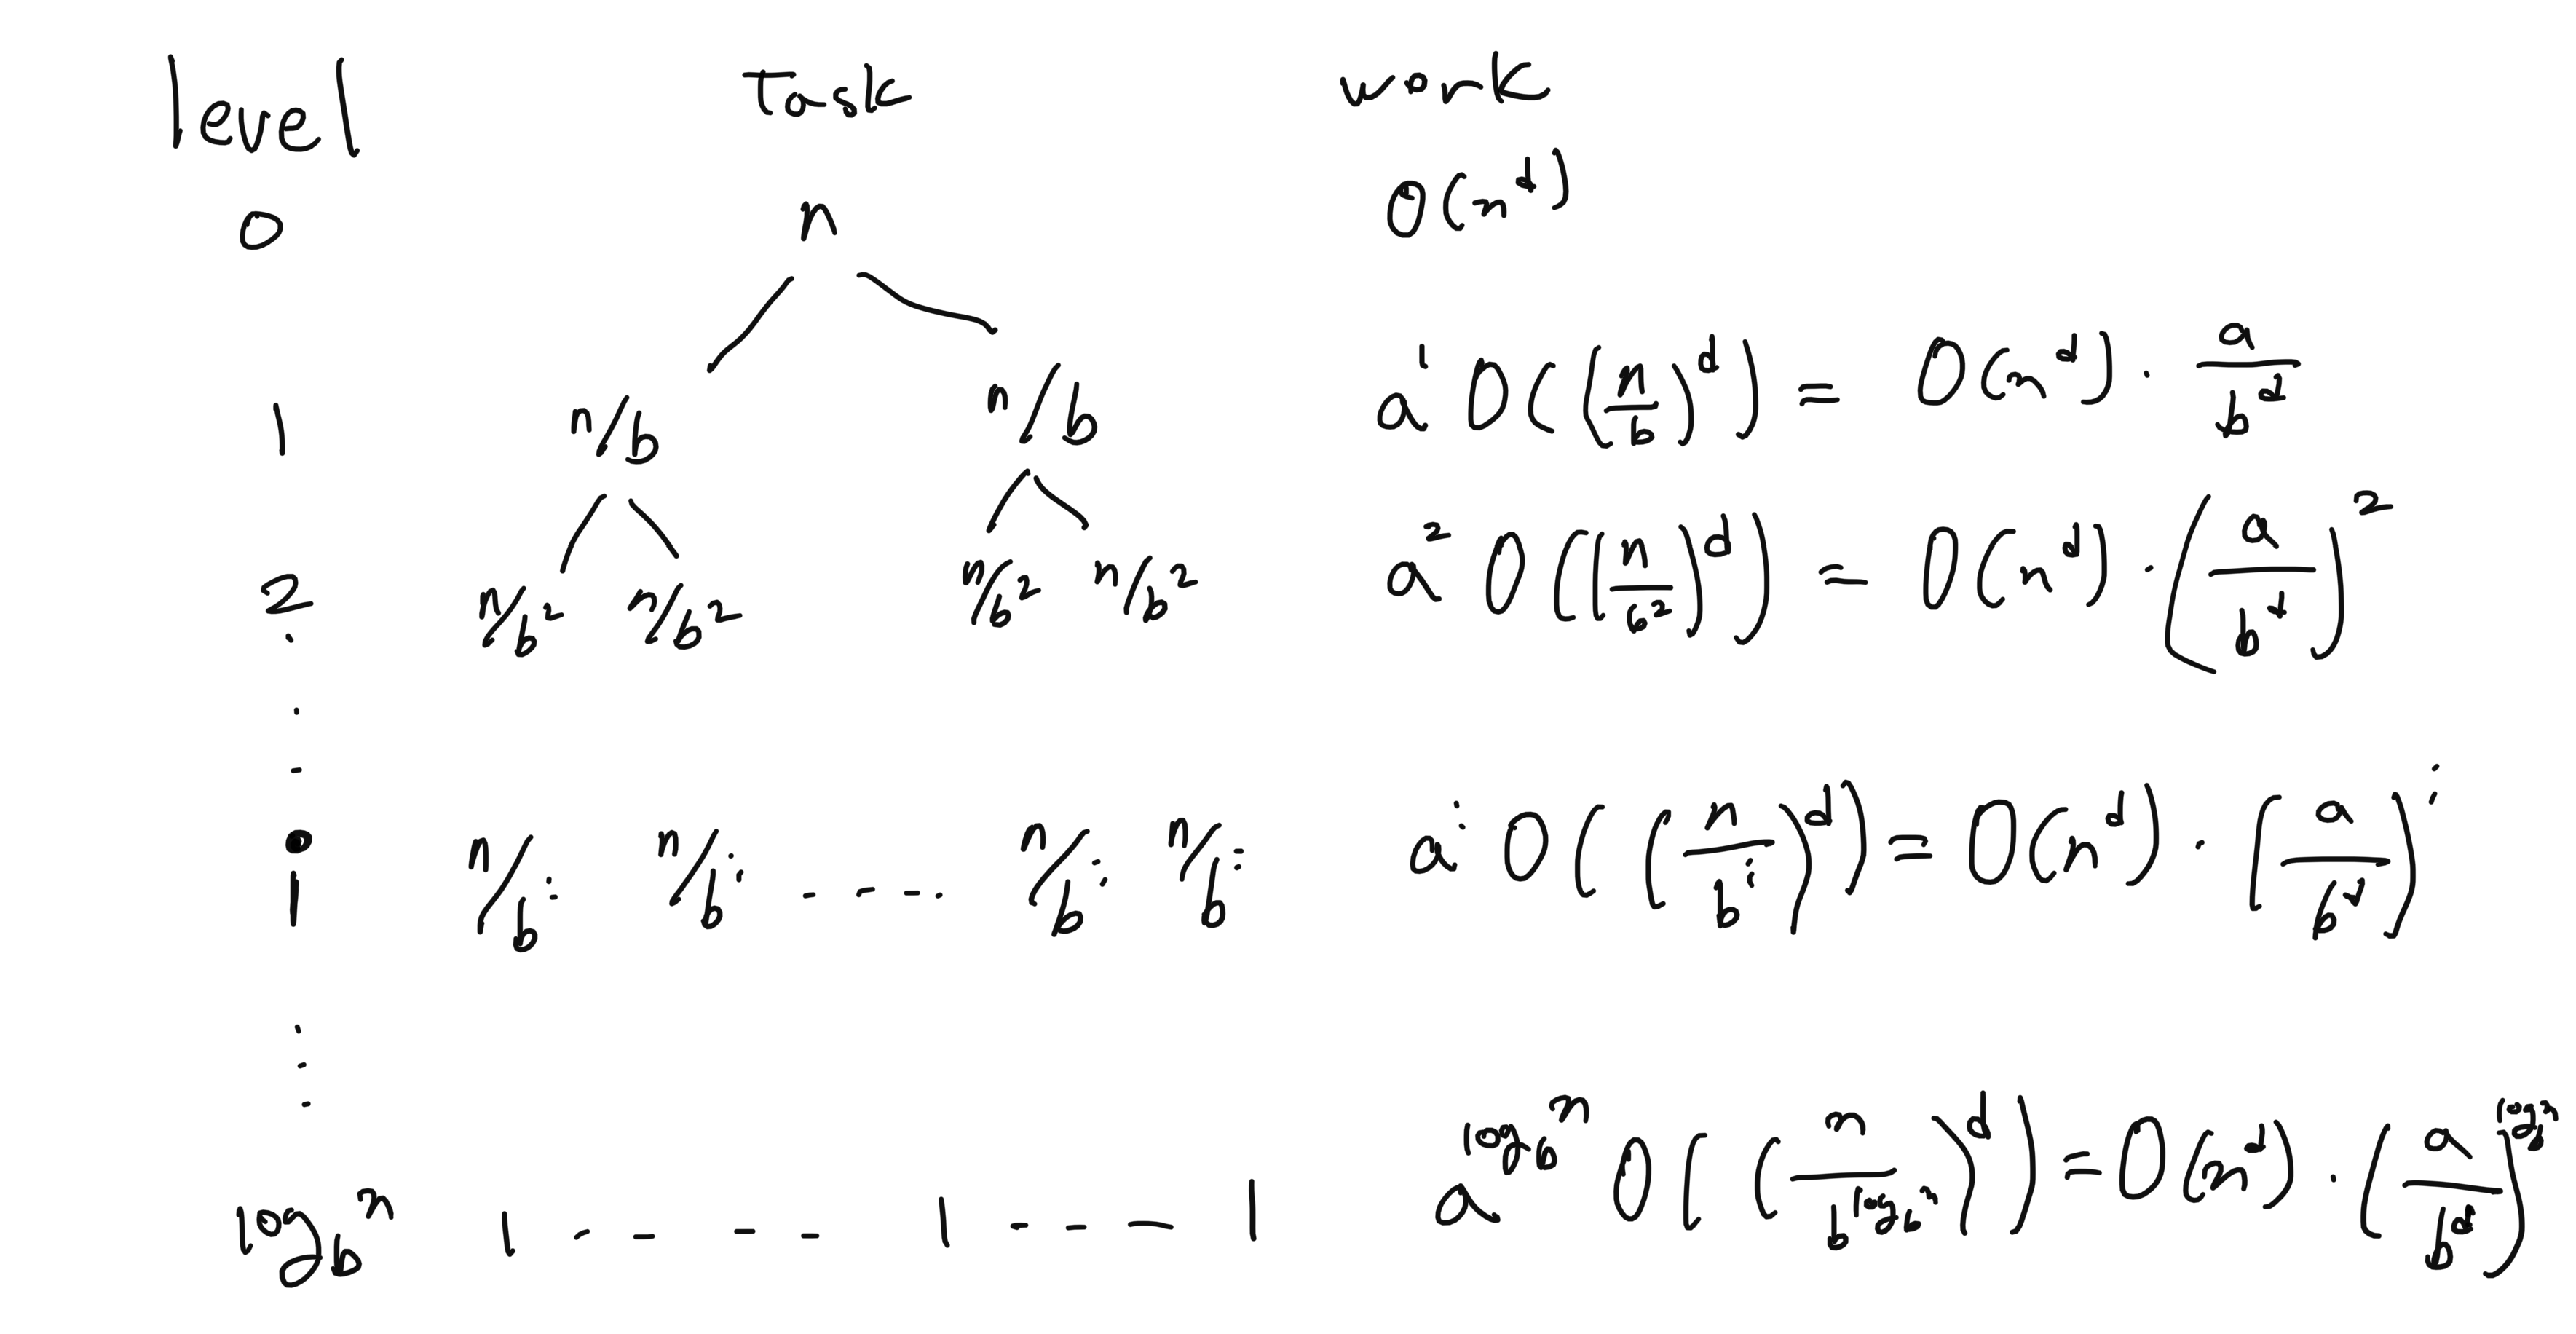 level Task work
0 n O(n^d)
1 n/b n/b a^1 O((n/b)^d) = O(n^d) · a/b^d
2 n/b^2 n/b^2 n/b^2 n/b^2 a^2 O((n/b^2)^d) = O(n^d) · (a/b^d)^2
i n/b^i n/b^i .... n/b^i n/b^i a^i O((n/b^i)^d) = O(n^d) · (a/b^d)^i
log_b n 1 ---- 1 --- 1 a^(log_b n) O((n/b^(log_b n))^d) = O(n^d) · (a/b^d)^(log_b n)